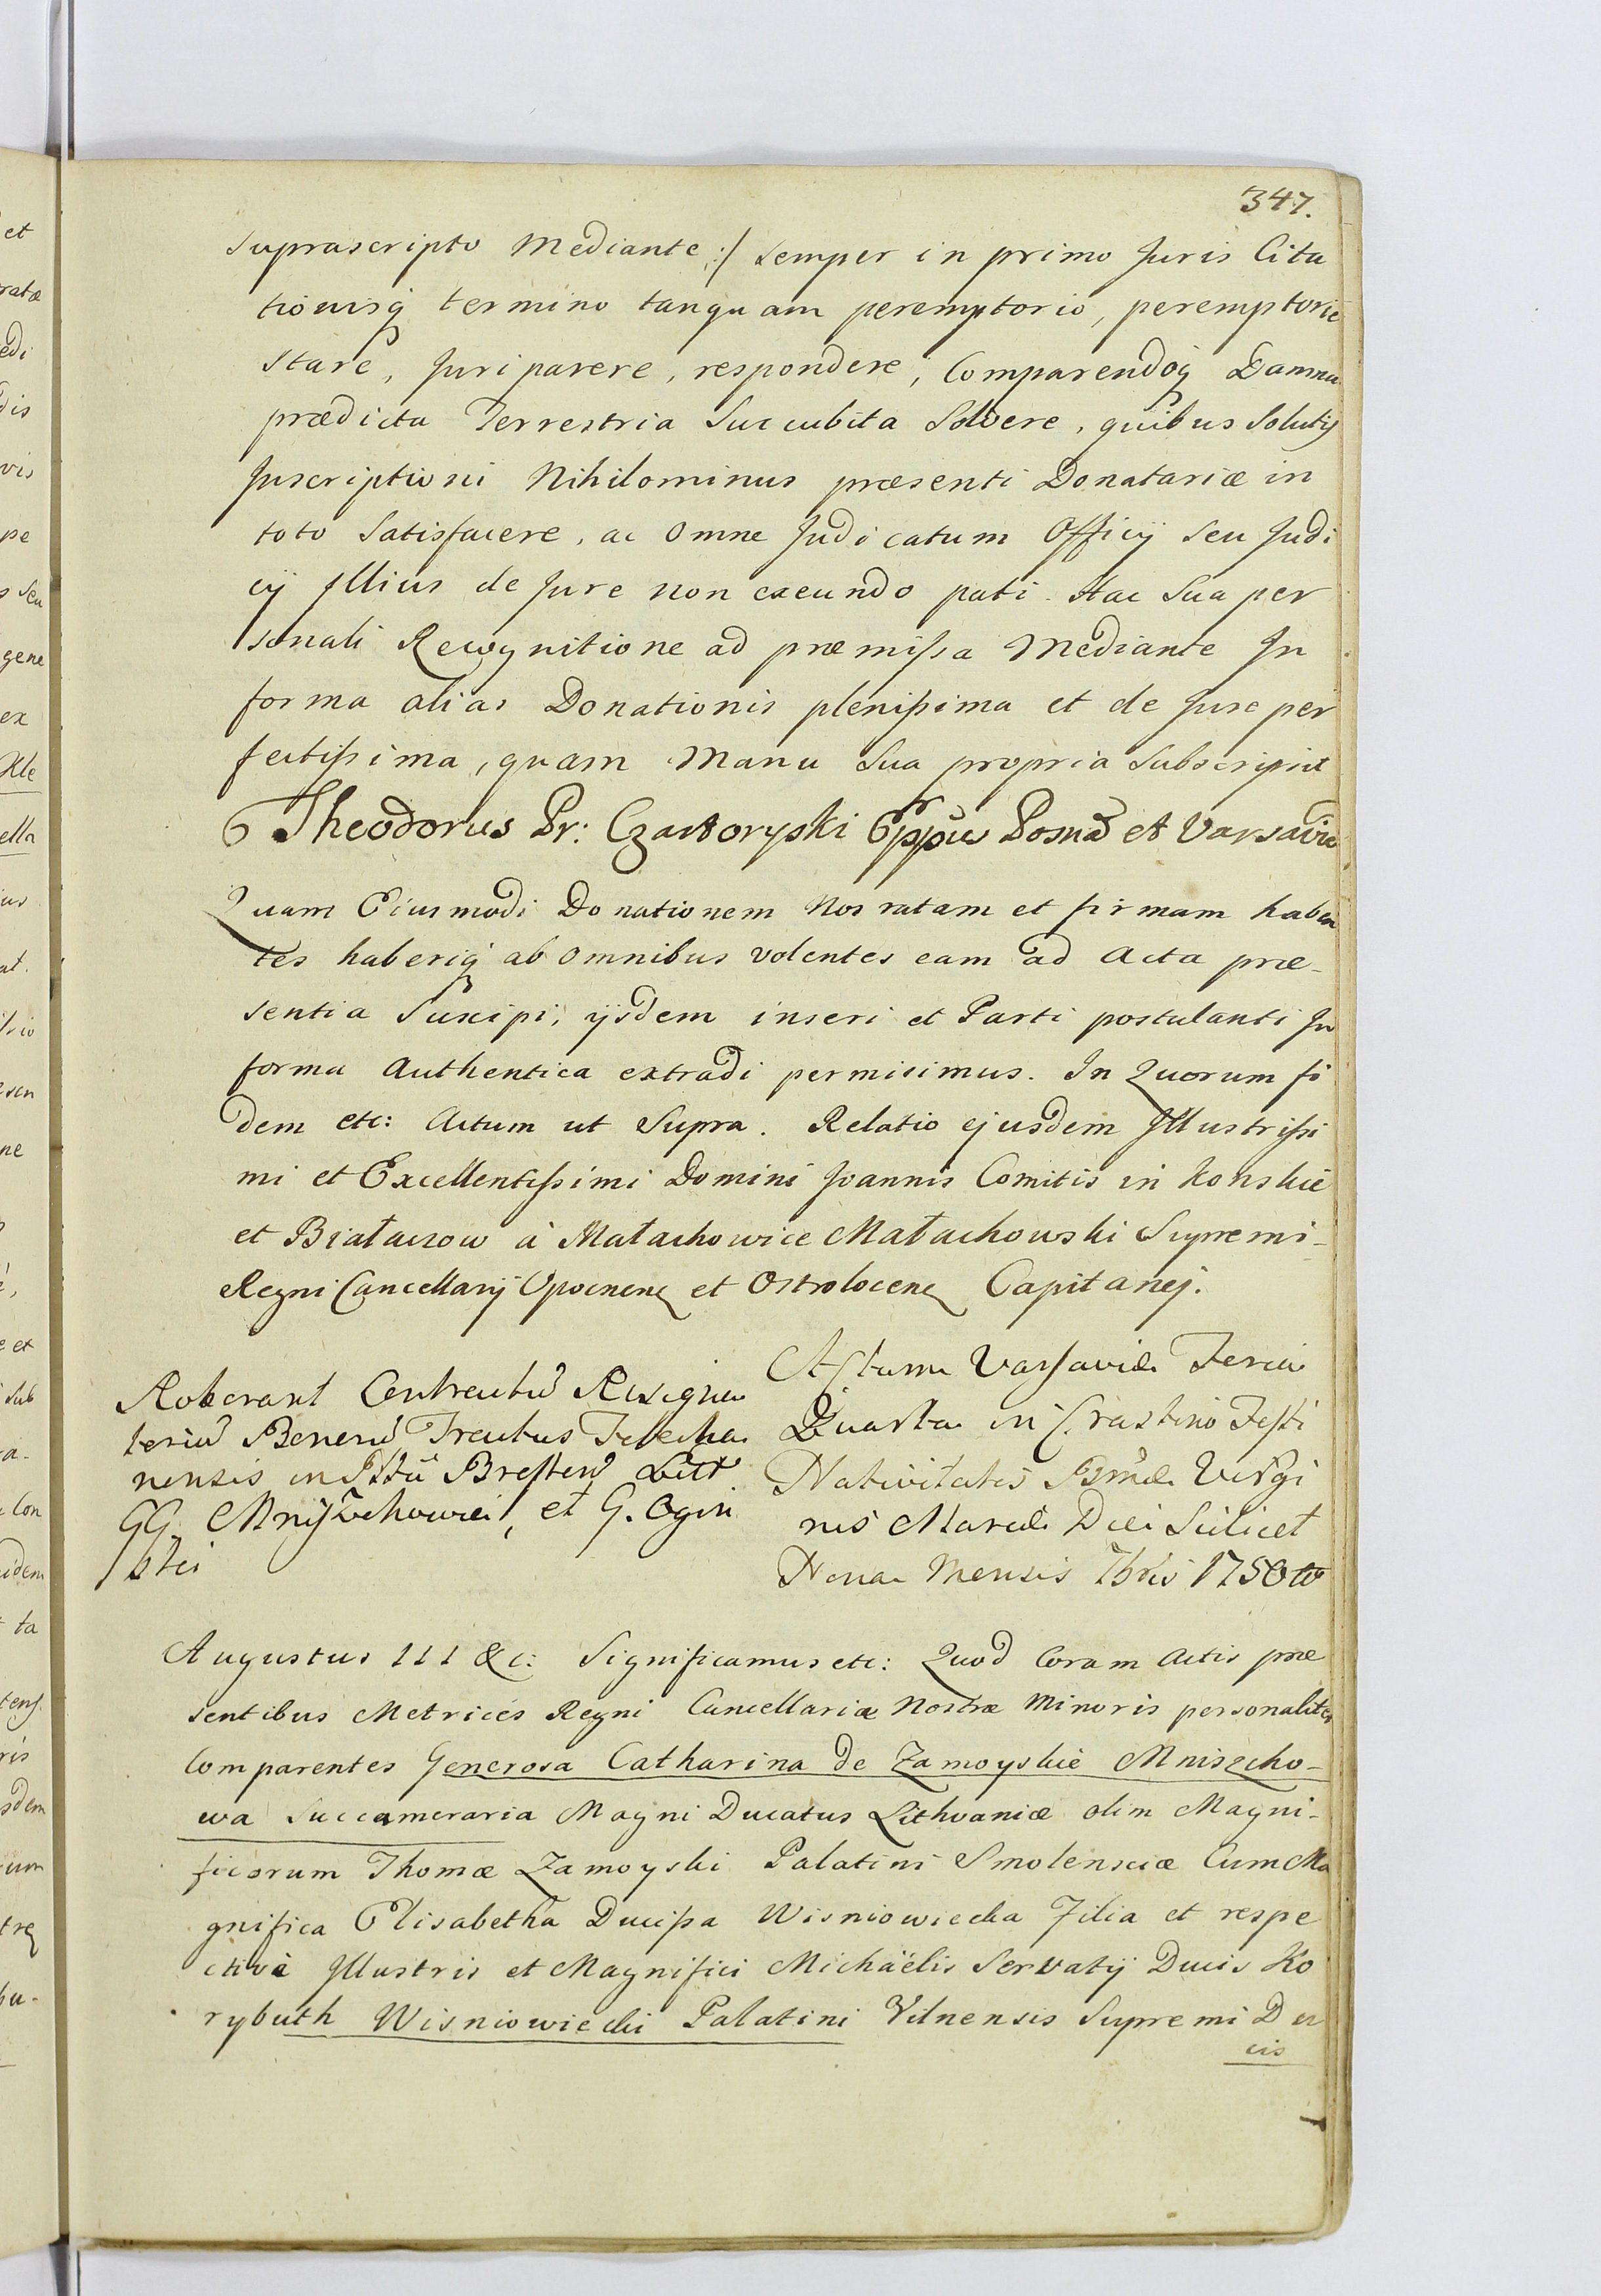 347.
Suprascripto Mediante :/ semper in primo Juris Cita
tionisq̃ termino tanquam peremptorio, peremptorie
stare, Juri parere, respondere, Comparendoq̃ Damna
prædicta Terrestria Succubita Solvere, quibus Solutis
Inscriptioni Nihilominus præsenti Donatariæ in
toto Satisfacere, ac omne Judicatum Officÿ Seu Judi
cÿ Illius de Jure non exeundo pati. Hac Sua per
sonali Recognitione ad præmissa Mediante In
forma alias Donationis plenissima et de Jure per
fectissima, quam Manu Sua propria Subscripsit
Theodorus Pr: Czartoryski Eppũs Posna et Varsaviæ
Quam Eiusmodi Donationem Nos ratam et firmam haben
tes haberiq̃ ab omnibus volentes eam ad Acta præ-
sentia Suscipi, ÿsdem inseri et Parti postulanti In
forma Authentica extradi permisimus. In Quorum fi
dem etc: Actum ut Supra. Relatio ejusdem Illustrissi
mi et Excellentissimi Domini Joannis Comitis in Konskie
et Białaczow à Małachowice Małachowski Supremi-
Regni Cancellarÿ Opocnenẹ et Ostrolocenẹ Capitanej.
Roborant Contractũ Resigna
toriũ Bonorũ Tractus Telecha
nensis in Pttũ Bresten Litt
GG. Mniszchowie, et G. Ogin
ski
Actum Varsaviæ Feria
Quarta in Crastino Festi
Nativitatis Bmæ Virgi
nis Mariæ Die Scilicet
Nona Mensis 7bris 1750to
Augustus III &c: Significamus etc: Quod Coram Actis præ
sentibus Metrices Regni Cancellariæ Nostræ Minoris personaliter
Comparentes Generosa Catharina de Zamoyskie Mniszcho-
wa Succameraria Magni Ducatus Lithvaniæ olim Magni-
ficorum Thomæ Zamoyski Palatini Smolensciæ Cum Ma
gnifica Elisabetha Ducissa Wisniowiecka Filia et respe
ctivè Illustris et Magnifici Michäelis Servatÿ Ducis Ko
rybuth Wisniowiecki Palatini Vilnensis Supremi Du
cis